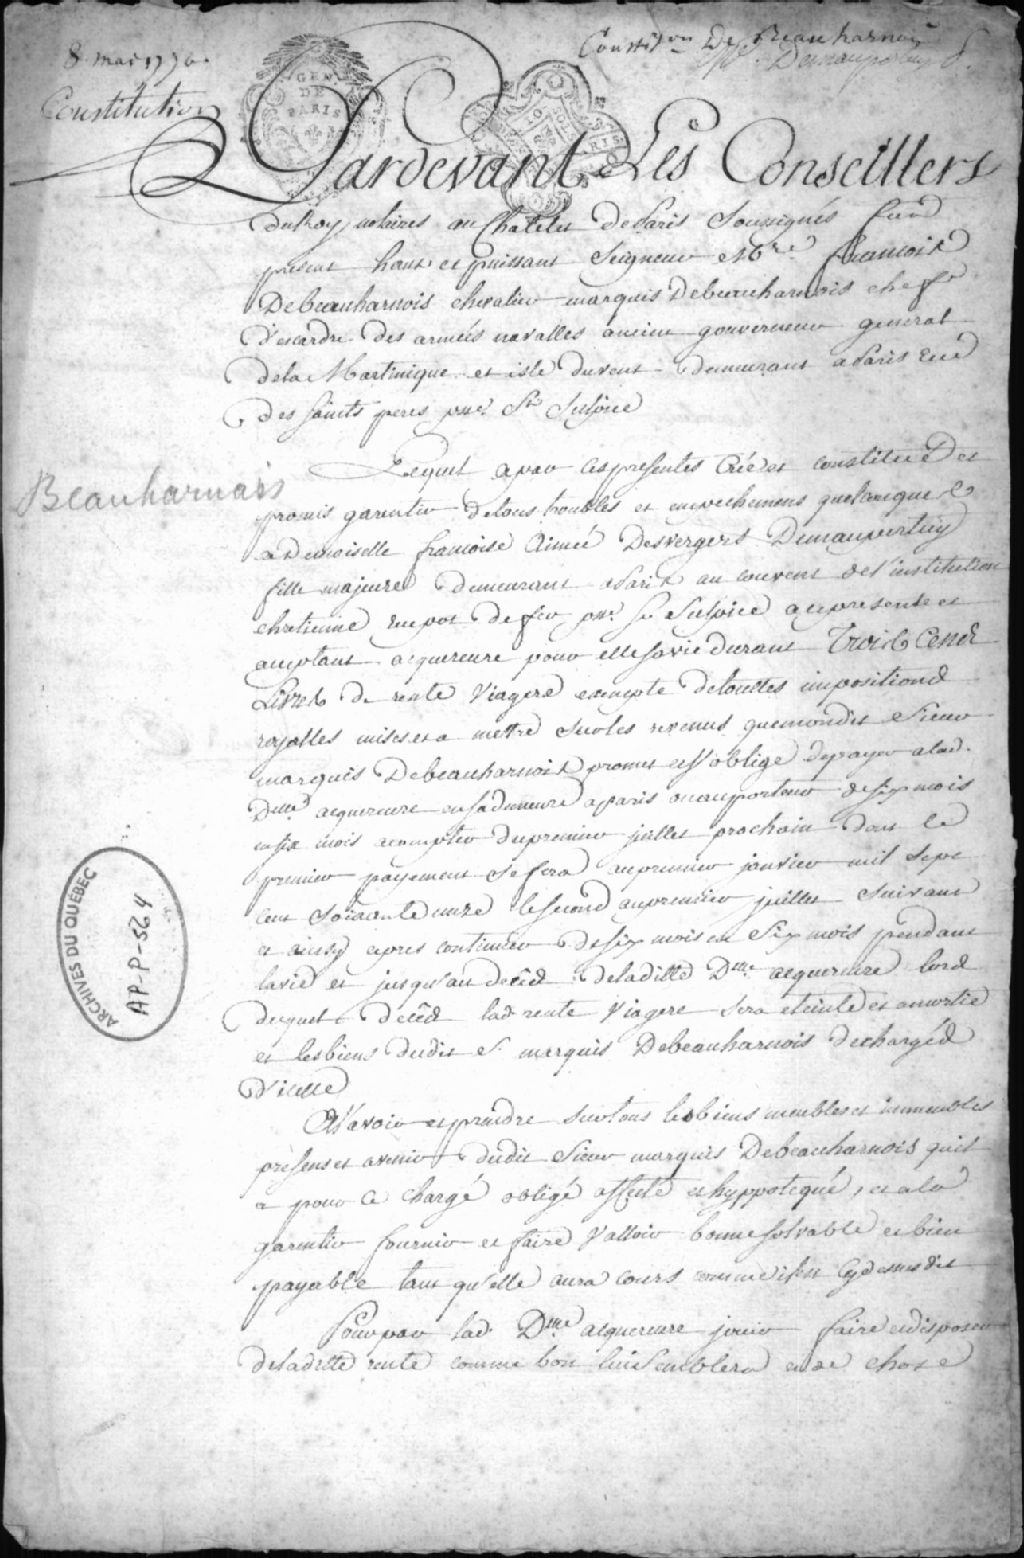 8 mai 1770.
Constit.on De Beauharnois
Constitution
GEN
DE
PARIS
Pardevant Les Conseillers
du Roy, notaires au Chatelet De Paris Soussignés fut
present haut et puissant Seigneur M.re francois
Debeauharnois chevalier marquis Debeauharnois chef
d'escardre des armés navalles ancien gouverneur general
dela Martinique et isle du vent demeurant a Paris rue
des saints peres par. St Sulpice
Lequel a par ces presentes Créé et constitué et
Beauharnais
promis garentir de tous troubles et empechemens quelconques
a Demoiselle francoise Aimée Desvergers Demaupertuy
fille majeure demeurant a Paris au couvent de l'institution
chretienne rue pot de fer par. St Sulpice a ce presente et
acceptant acquereure pour elle sa vie durant Trois Cent
Livres de rente Viagere exempte de touttes impositions
royalles mises et a mettre sur les revenus que mondit Sieur
marquis Debeauharnois promet et s'oblige de payer a lad.
Dlle acquereure en sa demeure a paris ou au porteur de six mois
en six mois a compter du premier juillet prochain dont le
premier payement se fera au premier janvier mil sept
cent soixante onze le second au premier juillet suivant
et ainsy apres continuer de six mois en six mois pendant
la vie et jusqu'au deces de laditte Dlle acquereure lors
duquel deces lad rente Viagere sera eteinte et amortie
et les biens dudit S. marquis Debeauharnois dechargés
d'icelle
A l'avoir et prendre sur tous les biens meubles et immeubles
présens et avenir dudit Sieur marquis Debeauharnois qu'il
a pour ce chargé obligé affecté et hyppotequé, et a la
garentir fournir et faire Valloir bonne solvable et bien
payable tant qu'elle aura cours comme il est cy dessus dit
Pour par lad Dlle acquereure jouir faire et disposer
de laditte rente comme bon lui semblera et de chose
ARCHIVES DU QUÉBEC
AP-P-564